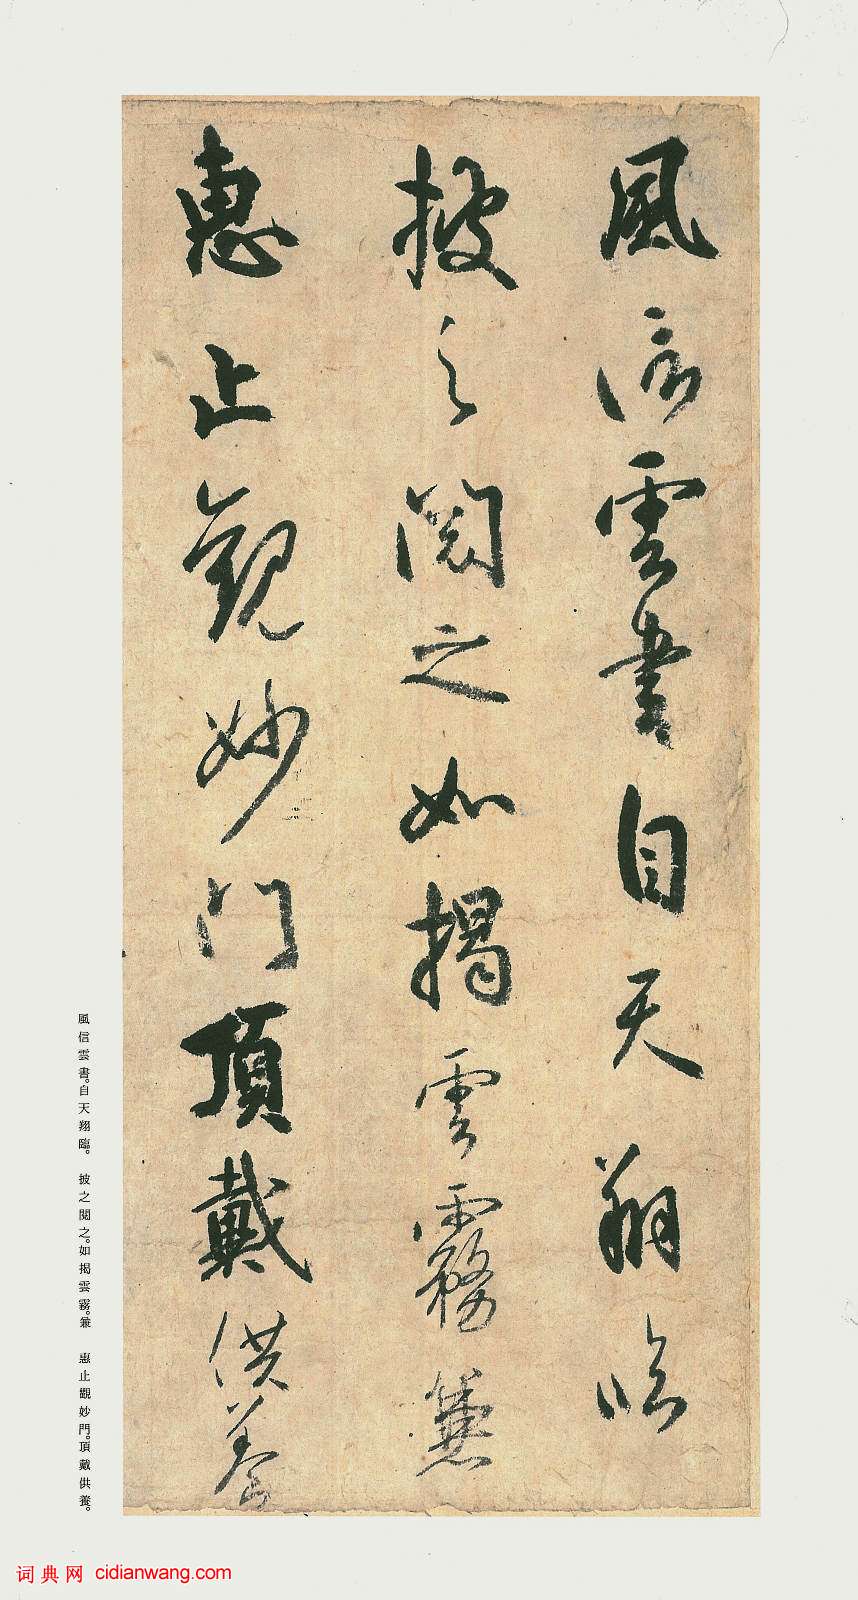 風信雲書自天翔臨
披之閱之如揭雲霧兼
惠止觀妙門頂戴供養
風信雲書。自天翔臨。 披之閱之。如揭雲霧。兼 惠止觀妙門。頂戴供養。
词典网 cidianwang.com